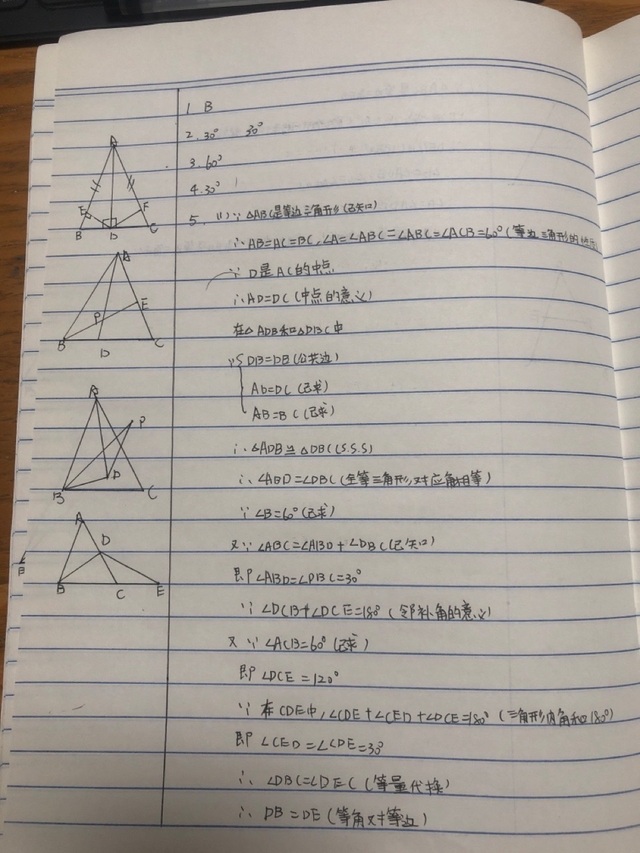 1 B
2. 30° 30°
3. 60°
4. 30°
5. (1) ∵ △ABC是等边三角形 (已知)
∴ AB=AC=BC, ∠A=∠ABC=∠ABC=∠ACB=60° (等边三角形的
∵ D是AC的中点
∴ AD=DC (中点的意义)
在△ADB和△DBC中
∵ { DB=DB (公共边)
AD=DC (已求)
AB=BC (已求)
∴ △ADB≌△DBC (S.S.S)
∴ ∠ABD=∠DBC (全等三角形对应角相等)
∵ ∠B=60° (已求)
又∵ ∠ABC=∠ABD+∠DBC (已知)
即∠ABD=∠DBC=30°
∵ ∠DCB+∠DCE=180° (邻补角的意义)
又∵ ∠ACB=60° (已求)
即 ∠DCE=120°
∵ 在CDE中, ∠CDE+∠CED+∠DCE=180° (三角形内角和180°)
即 ∠CED=∠CDE=30°
∴ ∠DBC=∠DEC (等量代换)
∴ DB=DE (等角对等边)
A
E F
B D C
A
P E
B D C
A
P
D
B C
A
D
B C E